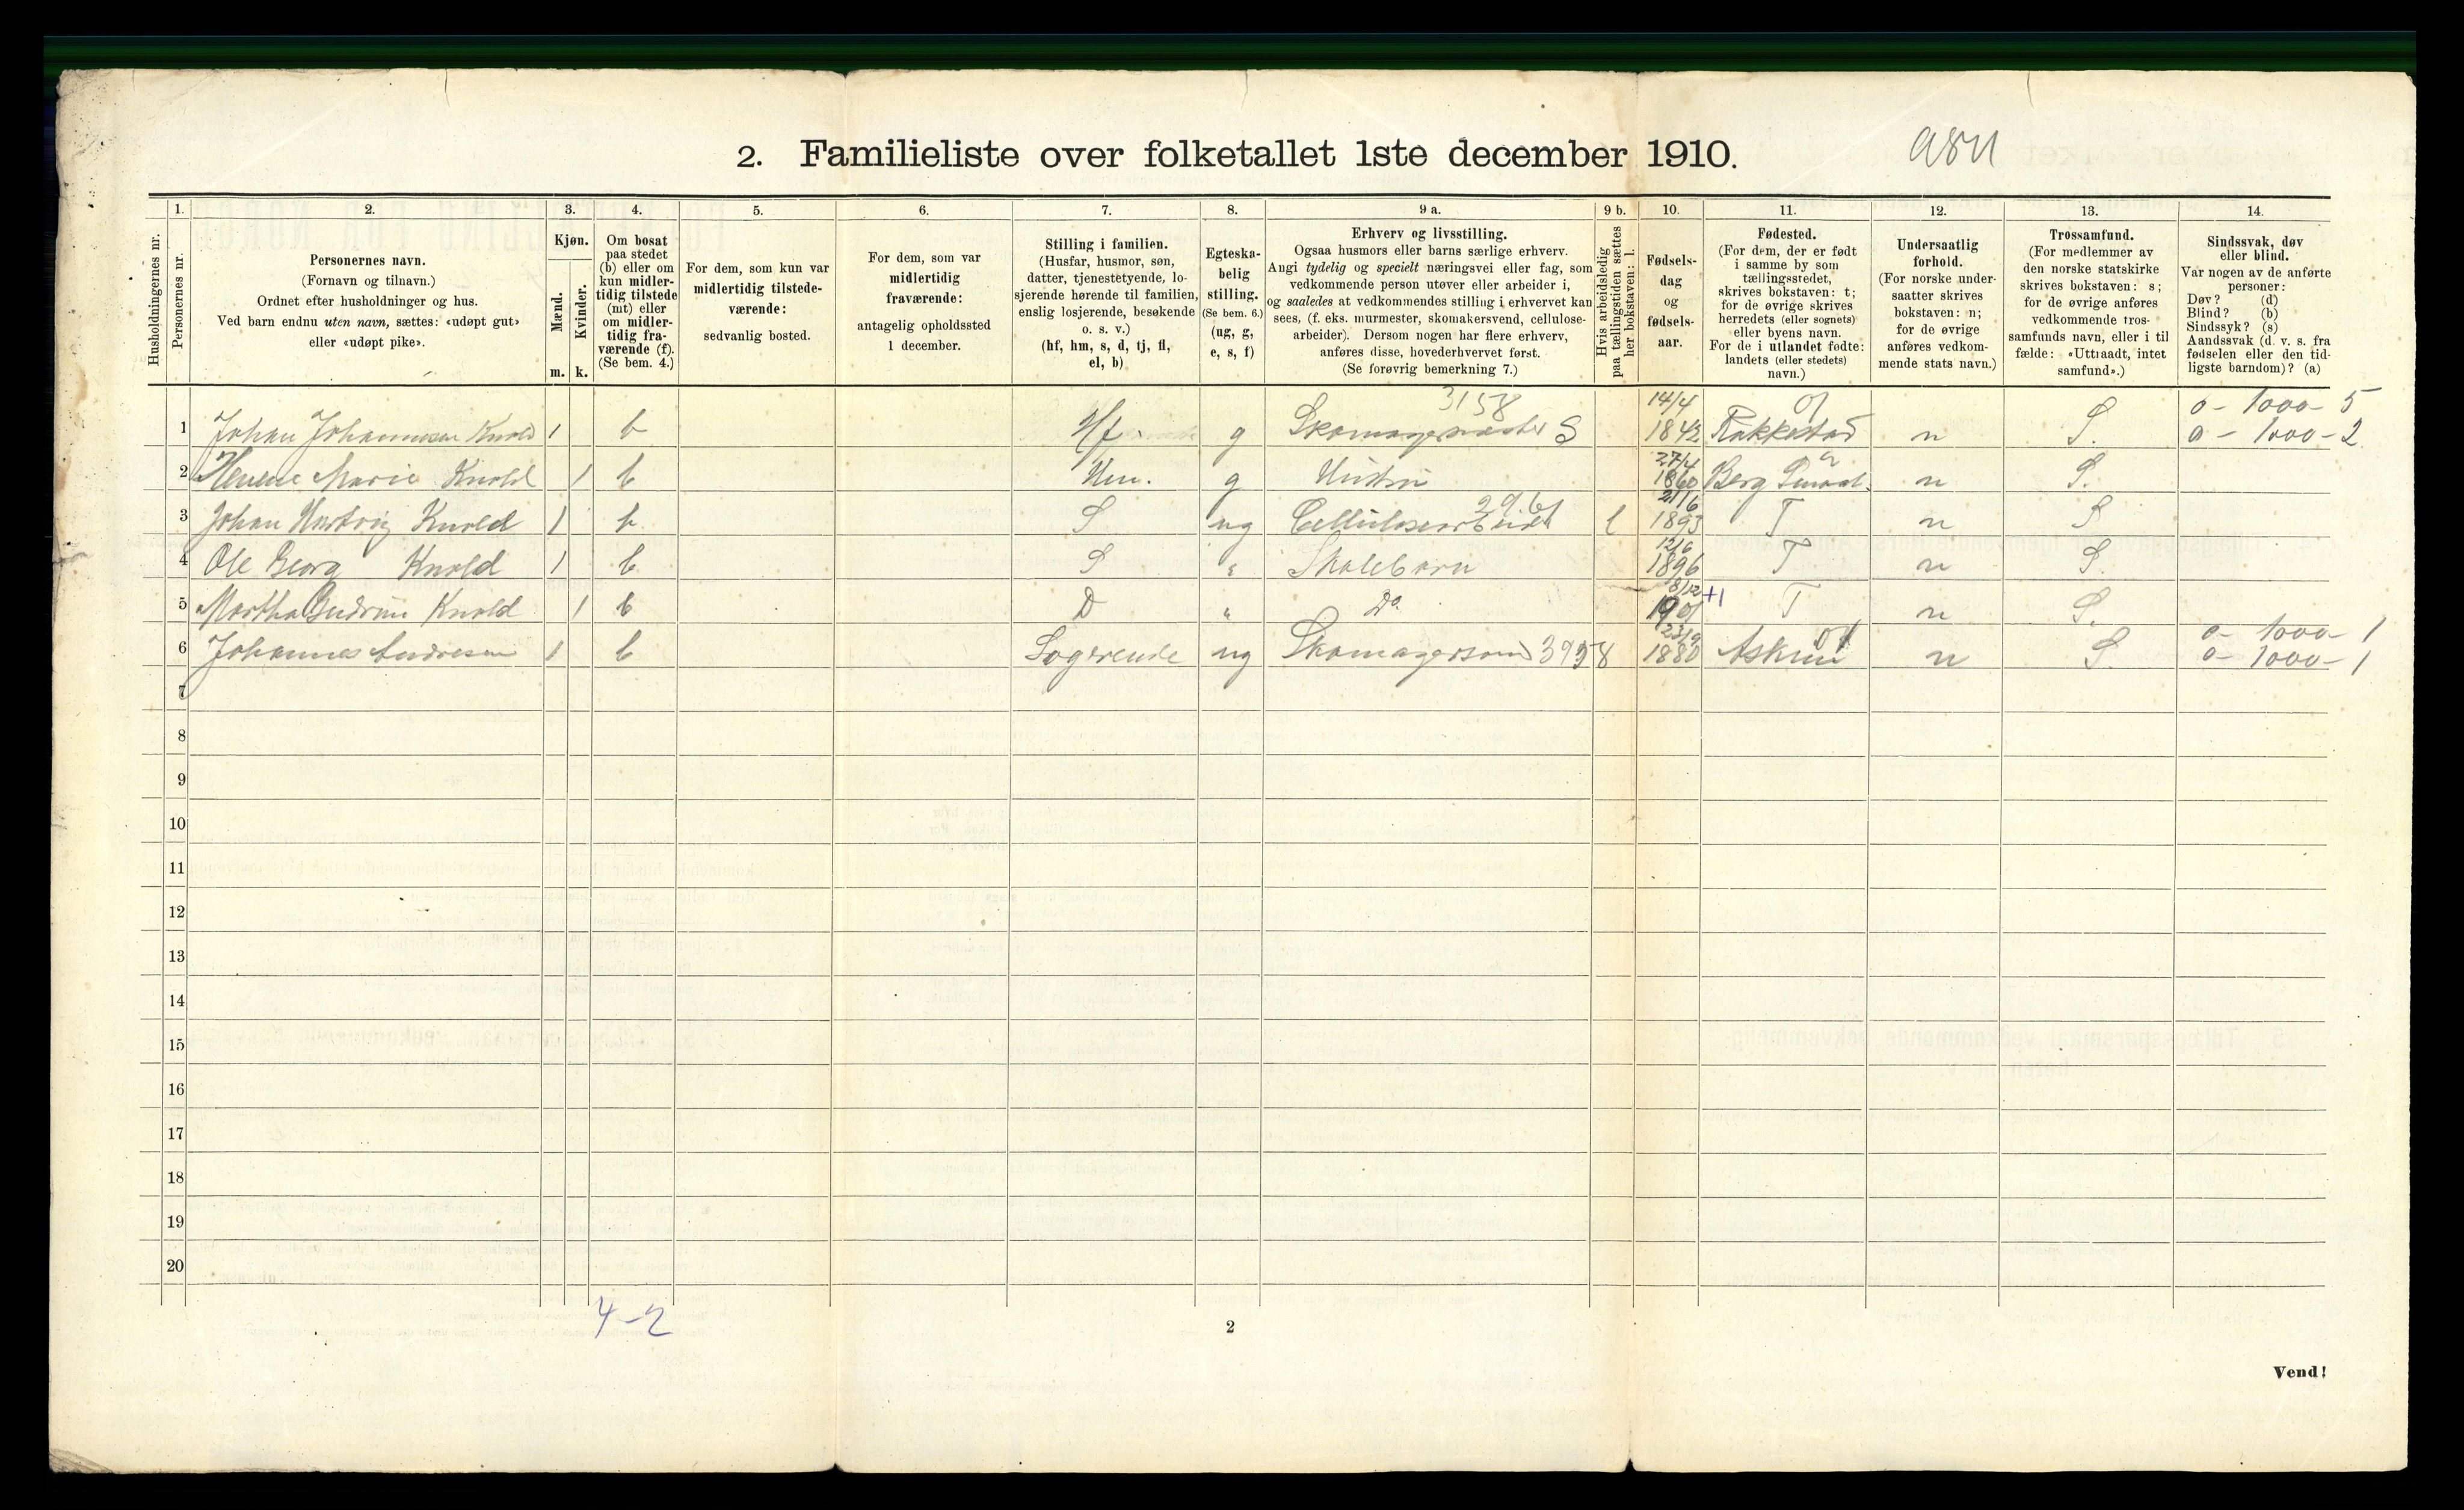 2. Familieliste over folketallet 1ste december 1910.
Husholdningernes nr.
1.
Personernes nr.
2.
Personernes navn.
(Fornavn og tilnavn.)
Ordnet efter husholdninger og hus.
Ved barn endnu uten navn, sættes: «udøpt gut»
eller «udøpt pike».
3.
Kjøn.
Mænd.
Kvinder.
m. k.
4.
Om bosat
paa stedet
(b) eller om
kun midler-
tidig tilstede
(mt) eller
om midler-
tidig fra-
værende (f).
(Se bem. 4.)
5.
For dem, som kun var
midlertidig tilstede-
værende:
sedvanlig bosted.
6.
For dem, som var
midlertidig
fraværende:
antagelig opholdssted
1 december.
7.
Stilling i familien.
(Husfar, husmor, søn,
datter, tjenestetyende, lo-
sjerende hørende til familien,
enslig losjerende, besøkende
o. s. v.)
(hf, hm, s, d, tj, fl,
el, b)
8.
Egteska-
belig
stilling.
(Se bem. 6.)
(ug, g,
e, s, f)
9 a.
Erhverv og livsstilling.
Ogsaa husmors eller barns særlige erhverv.
Angi tydelig og specielt næringsvei eller fag, som
vedkommende person utøver eller arbeider i,
og saaledes at vedkommendes stilling i erhvervet kan
sees, (f. eks. murmester, skomakersvend, cellulose-
arbeider). Dersom nogen har flere erhverv,
anføres disse, hovederhvervet først.
(Se forøvrig bemerkning 7.)
9 b.
Hvis arbeidsledig
paa tællingstiden sættes
her bokstaven: l.
10.
Fødsels-
dag
og
fødsels-
aar.
11.
Fødested.
(For dem, der er født
i samme by som
tællingsstedet,
skrives bokstaven: t;
for de øvrige skrives
herredets (eller sognets)
eller byens navn.
For de i utlandet fødte:
landets (eller stedets)
navn.)
12.
Undersaatlig
forhold.
(For norske under-
saatter skrives
bokstaven: n;
for de øvrige
anføres vedkom-
mende stats navn.)
13.
Trossamfund.
(For medlemmer av
den norske statskirke
skrives bokstaven: s;
for de øvrige anføres
vedkommende tros-
samfunds navn, eller i til
fælde: «Uttraadt, intet
samfund».)
14.
Sindssvak, døv
eller blind.
Var nogen av de anførte
personer:
Døv? (d)
Blind? (b)
Sindssyk? (s)
Aandssvak (d. v. s. fra
fødselen eller den tid-
ligste barndom)? (a)
3158 14/4 0 - 1000 - 5
1 Johan Johannesen Knold 1 b Hf g Skomagermester S 1842 Rakkestad n S. 0 - 1000 - 2
27/4
2 Marie Knold 1 b Hm. g Hustru 1860 Berg n S.
21/6
3 Johan Hartvig Knold 1 b S ug Cellulosearbeider l 1893 T n S
12/6
4 Ole Georg Knold 1 b S " Skolebarn 1896 T n S.
8/12 +1
5 Martha Gudrun Knold 1 b D " Do 1901 T n S.
23/9 0 - 1000 - 1
6 Johannes Andresen 1 b Logerende ug 3958 1880 Askim n S 0 - 1000 - 1
7
8
9
10
11
12
13
14
15
16
17
18
19
20
4-2
2
Vend!